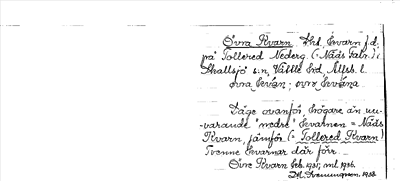 Övra Kvarn, Hist. kvarn f.d.
på Tollered Nederg. (: Nääs fabr.) i
Skallsjö s:n, Vättle hd, Älfsb. l.
övra kvän; övre kväna
Låge ovanför, högre än nu-
varande "nedre" kvarnen = Nääs
Kvarn, jämför (= Tollered Kvarn)
Tvenne kvarnar där förr.
Övre Kvarn